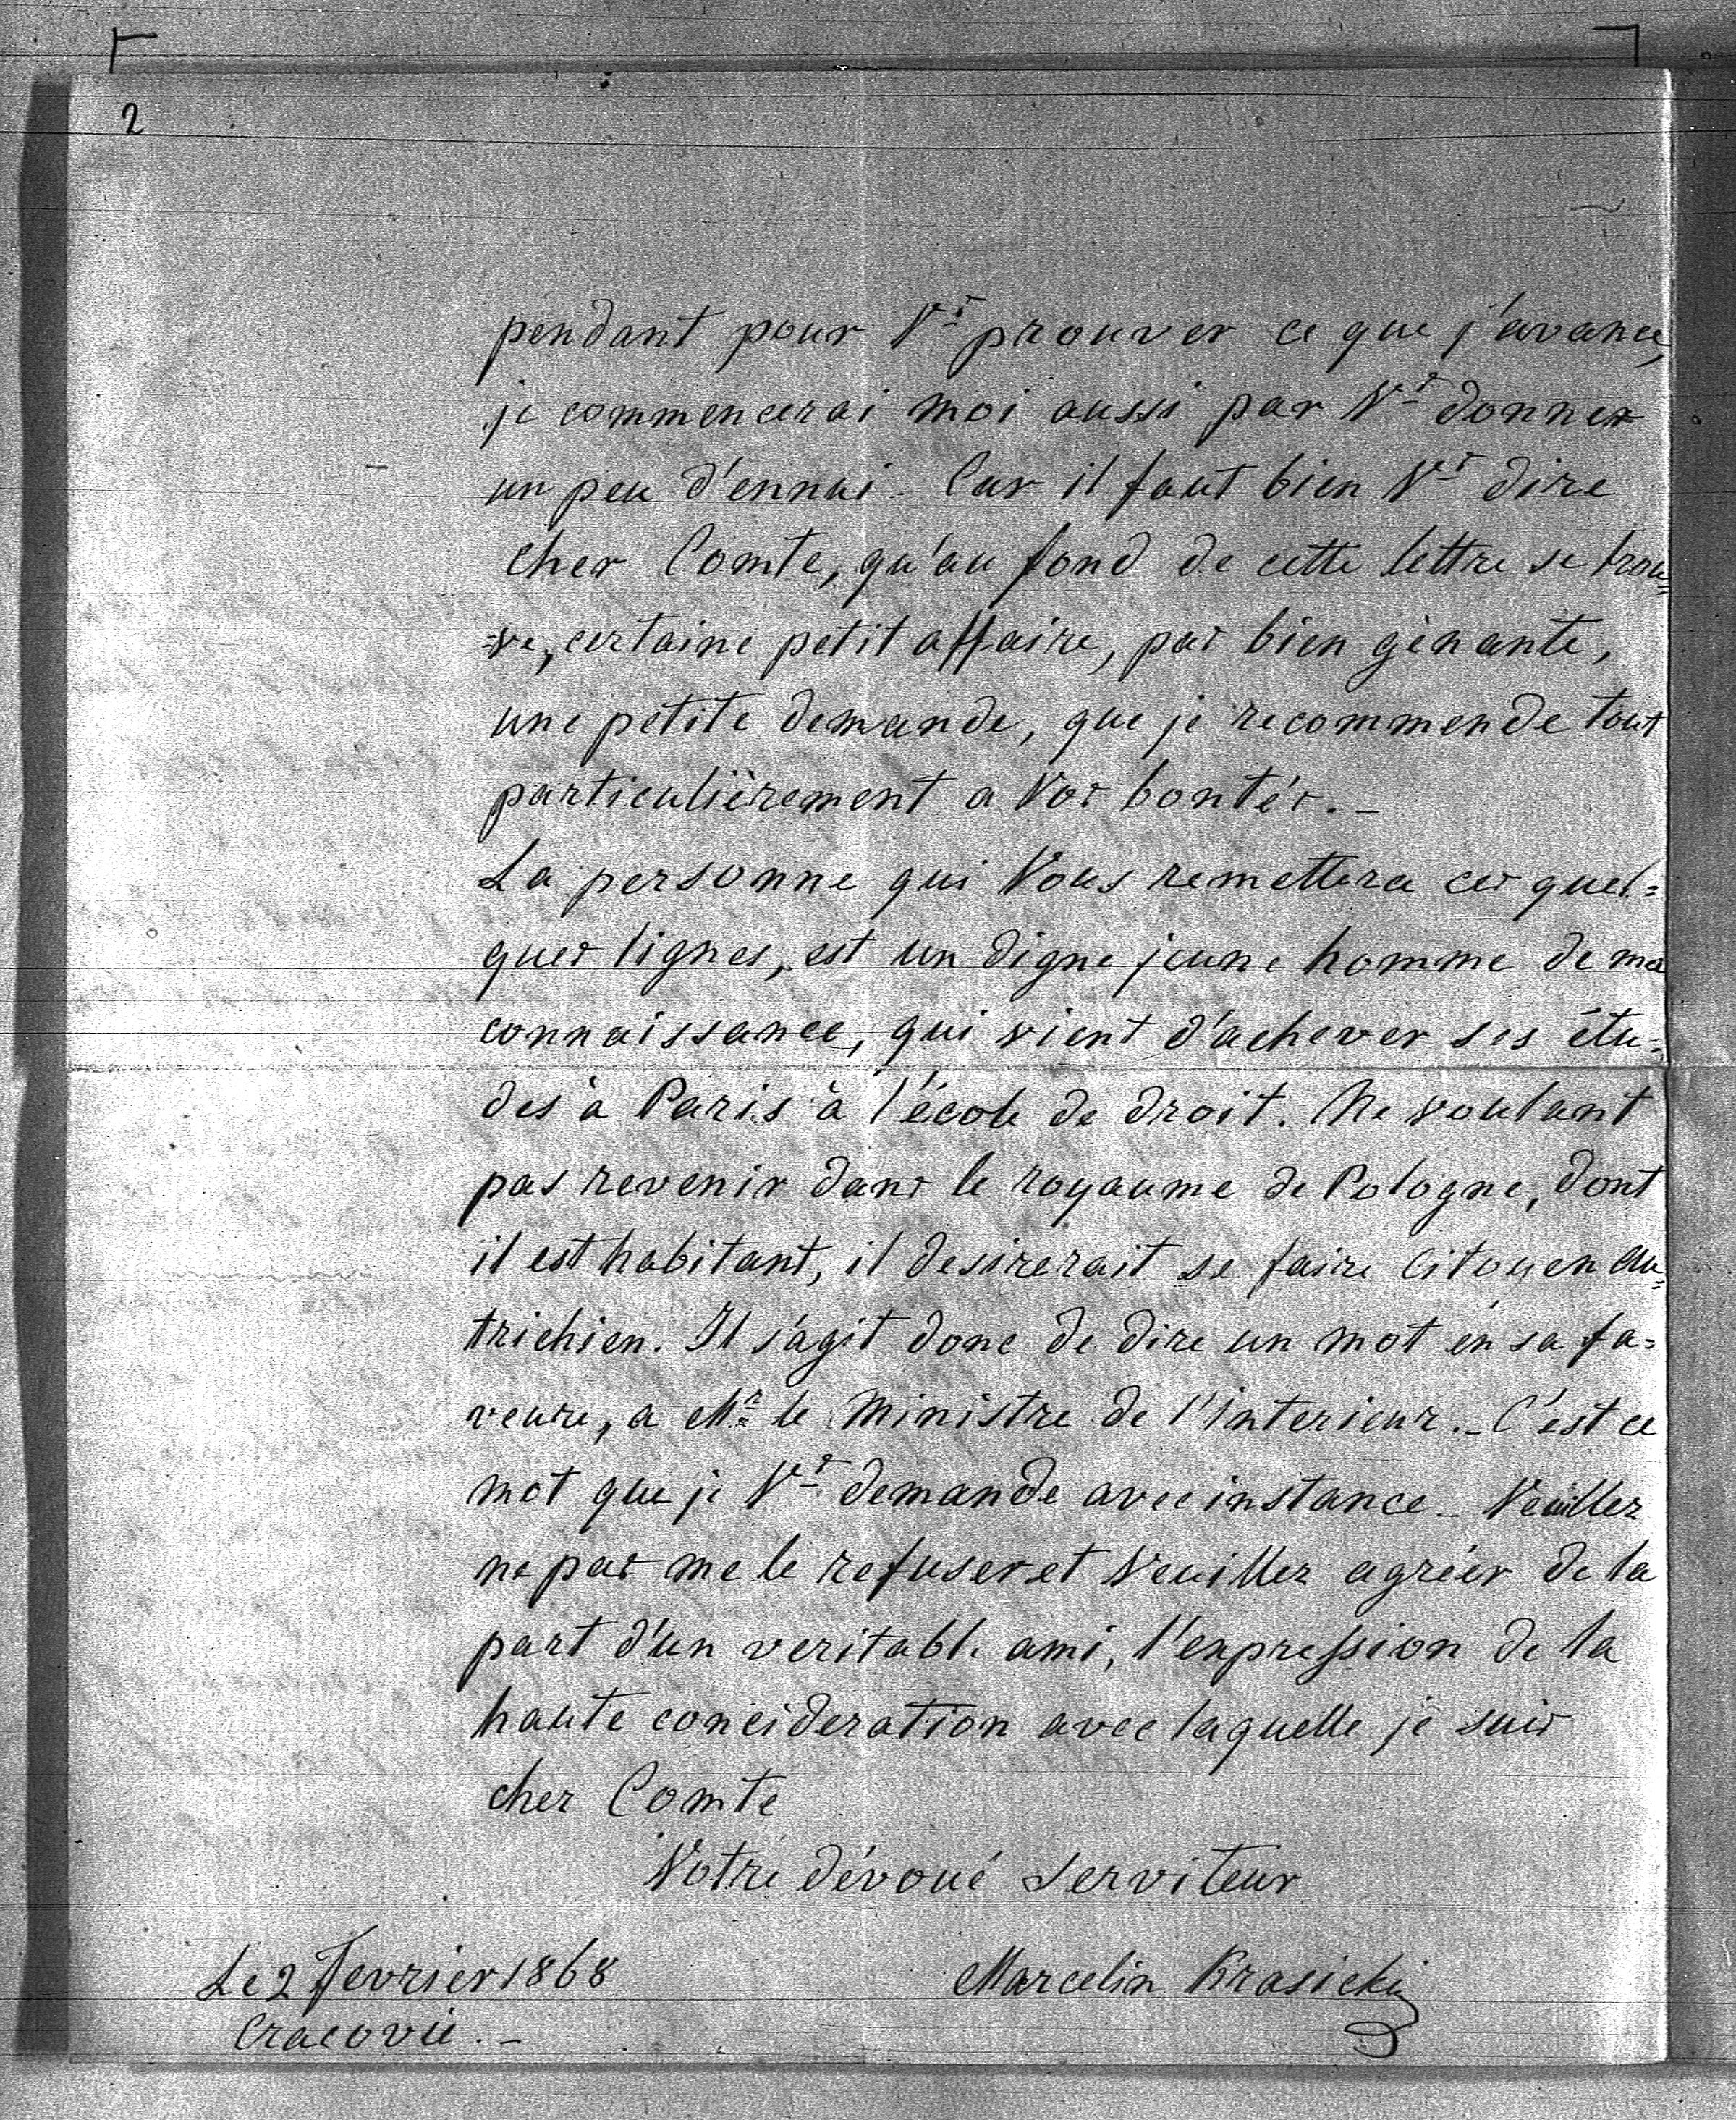 2
pendant pour Vs prouver ce que j'avance,
je commencerai moi aussi par Vs donner
un peu d'ennui. Car il faut bien Vs dire
cher Comte, qu'au fond de cette lettre se trou=
=ve, certaine petit affaire, pas bien gènante,
une petite demande, que je recommende tout
particulièrement a Vos bontés. _
La personne qui Vous remettera ces quel=
ques lignes, est un digne jeune homme de ma
connaissance, qui vient d'achever ses étu=
des à Paris à l'école de droit. Ne voulant
pas revenir dans le royaume de Pologne, dont
il est habitant, il desirerait se faire Citoyen Au=
trichien. Il s'agit donc de dire un mot en sa fa=
veure, a Mr le Ministre de l'Interieur. _ C'est ce
mot que je Vs demande avec instance _ Veuillez
ne pas me le refuser et Veuillez agréér de la
part d'un veritable ami, l'expression de la
haute concideration avec laquelle je suis
cher Comte
Votre dévoué Serviteur
Le 2 Fevrier 1868
Marcelin Krasicki
Cracovie. _